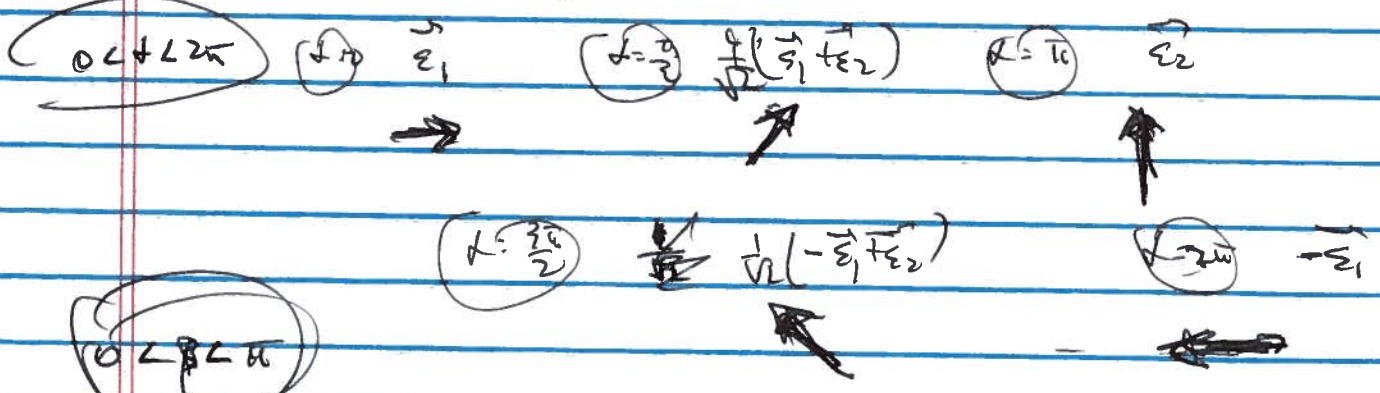 0 < α < 2π α=0 ε⃗₁ α=π/2 1/√2(ε⃗₁+ε⃗₂) α=π ε⃗₂
α=3π/2 1/√2(-ε⃗₁+ε⃗₂) α=2π -ε⃗₁
0 < β < π